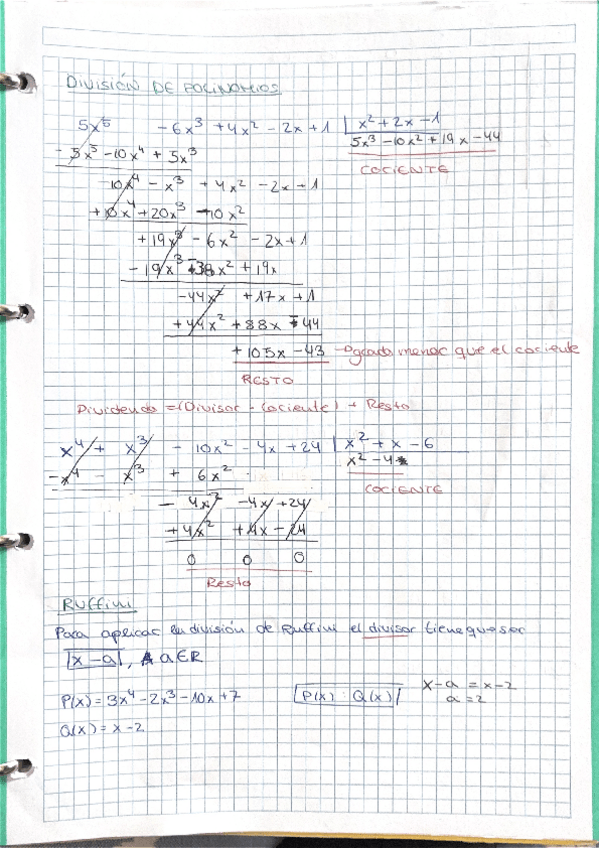 DIVISIÓN DE POLINOMIOS
5x⁵ - 6x³ + 4x² - 2x + 1 | x² + 2x - 1
- 5x⁵ - 10x⁴ + 5x³ 5x³ - 10x² + 19x - 44
COCIENTE
10x⁴ - x³ + 4x² - 2x + 1
+ 10x⁴ + 20x³ - 10x²
+ 19x³ - 6x² - 2x + 1
- 19x³ - 38x² + 19x
- 44x² + 17x + 1
+ 44x² + 88x - 44
+ 105x - 43 → grado menor que el cociente
RESTO
Dividendo = (Divisor · Cociente) + Resto
x⁴ + x³ - 10x² - 4x + 24 | x² + x - 6
- x⁴ - x³ + 6x² x² - 4
COCIENTE
- 4x² - 4x + 24
+ 4x² + 4x - 24
0 0 0
Resto
RUFFINI
Para aplicar la división de Ruffini el divisor tiene que ser
|x - a|, a ∈ R
P(x) = 3x⁴ - 2x³ - 10x + 7 |P(x) : Q(x)| x - a = x - 2
a = 2
Q(x) = x - 2